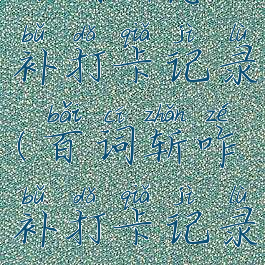 bǔ dǎ qiǎ jì lù
补打卡记录
bǎi cí zhǎn zě
(百词斩咋
bǔ dǎ qiǎ jì lù
补打卡记录